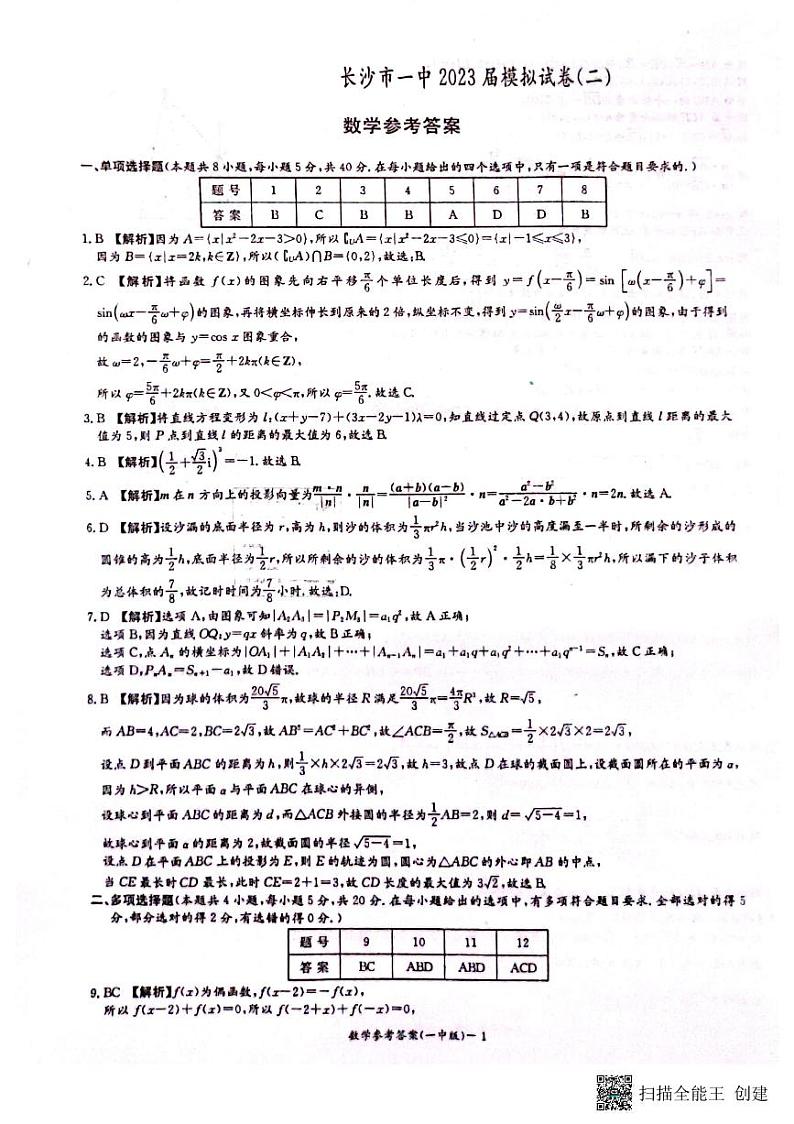 长沙市一中 2023 届模拟试卷(二)
数学参考答案
一、单项选择题(本题共 8 小题,每小题 5 分,共 40 分.在每小题给出的四个选项中,只有一项是符合题目要求的.)
题 号 1 2 3 4 5 6 7 8
答 案 B C B B A D D B
1. B 【解析】因为 A={x|x²-2x-3>0},所以∁UA={x|x²-2x-3≤0}={x|-1≤x≤3},
因为 B={x|x=2k,k∈Z},所以(∁UA)∩B={0,2},故选:B.
2. C 【解析】将函数 f(x)的图象先向右平移 π/6 个单位长度后,得到 y=f(x-π/6)=sin[ω(x-π/6)+φ]=
sin(ωx-π/6ω+φ)的图象,再将横坐标伸长到原来的 2 倍,纵坐标不变,得到 y=sin(ω/2x-π/6ω+φ)的图象,由于得到
的函数的图象与 y=cos x 图象重合,
故 ω=2,-π/6ω+φ=π/2+2kπ(k∈Z),
所以 φ=5π/6+2kπ(k∈Z),又 0<φ<π,所以 φ=5π/6.故选 C.
3. B 【解析】将直线方程变形为 l:(x+y-7)+(3x-2y-1)λ=0,知直线过定点 Q(3,4),故原点到直线 l 距离的最大
值为 5,则 P 点到直线 l 的距离的最大值为 6,故选 B.
4. B 【解析】(1/2+√3/2i)³=-1.故选 B.
5. A 【解析】m 在 n 方向上的投影向量为 m·n/|n|·n/|n|=(a+b)(a-b)/|a-b|²·n=a²-b²/a²-2a·b+b²·n=2n.故选 A.
6. D 【解析】设沙漏的底面半径为 r,高为 h,则沙的体积为 1/3πr²h,当沙池中沙的高度漏至一半时,所剩余的沙形成的
圆锥的高为 1/2h,底面半径为 1/2r,所以所剩余的沙的体积为 1/3π·(1/2r)²·1/2h=1/8×1/3πr²h,所以漏下的沙子体积
为总体积的 7/8,故记时时间为 7/8 小时.故选:D.
7. D 【解析】选项 A,由图象可知|A₂A₃|=|P₂M₂|=a₁q²,故 A 正确;
选项 B,因为直线 OQ:y=qx 斜率为 q,故 B 正确;
选项 C,点 Aₙ 的横坐标为|OA₁|+|A₁A₂|+…+|Aₙ₋₁Aₙ|=a₁+a₁q+a₁q²+…+a₁qⁿ⁻¹=Sₙ,故 C 正确;
选项 D,PₙAₙ=Sₙ₊₁-a₁,故 D 错误.
8. B 【解析】因为球的体积为 20√5/3π,故球的半径 R 满足 20√5/3π=4π/3R³,故 R=√5,
而 AB=4,AC=2,BC=2√3,故 AB²=AC²+BC²,故∠ACB=π/2,故 S△ACB=1/2×2√3×2=2√3,
设点 D 到平面 ABC 的距离为 h,则 1/3×h×2√3=2√3,故 h=3,故点 D 在球的截面圆上,设截面圆所在的平面为 α,
因为 h>R,所以平面 α 与平面 ABC 在球心的异侧,
设球心到平面 ABC 的距离为 d,而△ACB 外接圆的半径为 1/2AB=2,则 d=√5-4=1,
故球心到平面 α 的距离为 2,故截面圆的半径 √5-4=1,
设点 D 在平面 ABC 上的投影为 E,则 E 的轨迹为圆,圆心为△ABC 的外心即 AB 的中点,
当 CE 最长时 CD 最长,此时 CE=2+1=3,故 CD 长度的最大值为 3√2,故选 B.
二、多项选择题(本题共 4 小题,每小题 5 分,共 20 分.在每小题给出的选项中,有多项符合题目要求.全部选对的得 5
分,部分选对的得 2 分,有选错的得 0 分.)
题 号 9 10 11 12
答 案 BC ABD ABD ACD
9. BC 【解析】f(x)为偶函数,f(x-2)=-f(x),
所以 f(x-2)+f(x)=0,所以 f(-2+x)+f(-x)=0,
数学参考答案(一中版)- 1
扫描全能王 创建